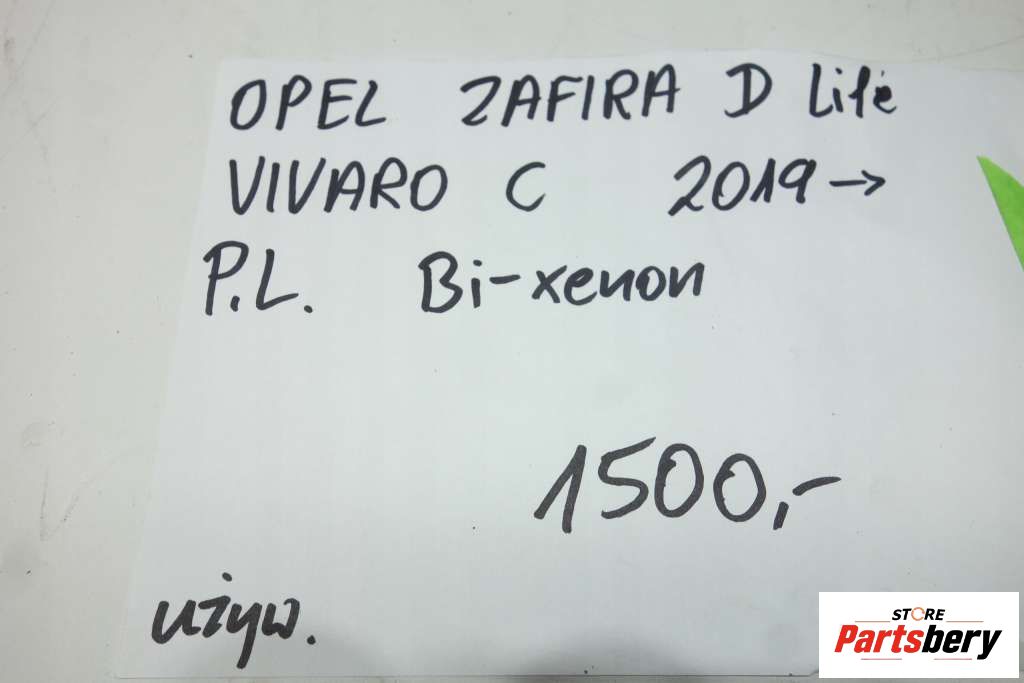 OPEL ZAFIRA D Life
VIVARO C 2019→
P.L. Bi-xenon
1500,-
używ.
STORE
Partsbery